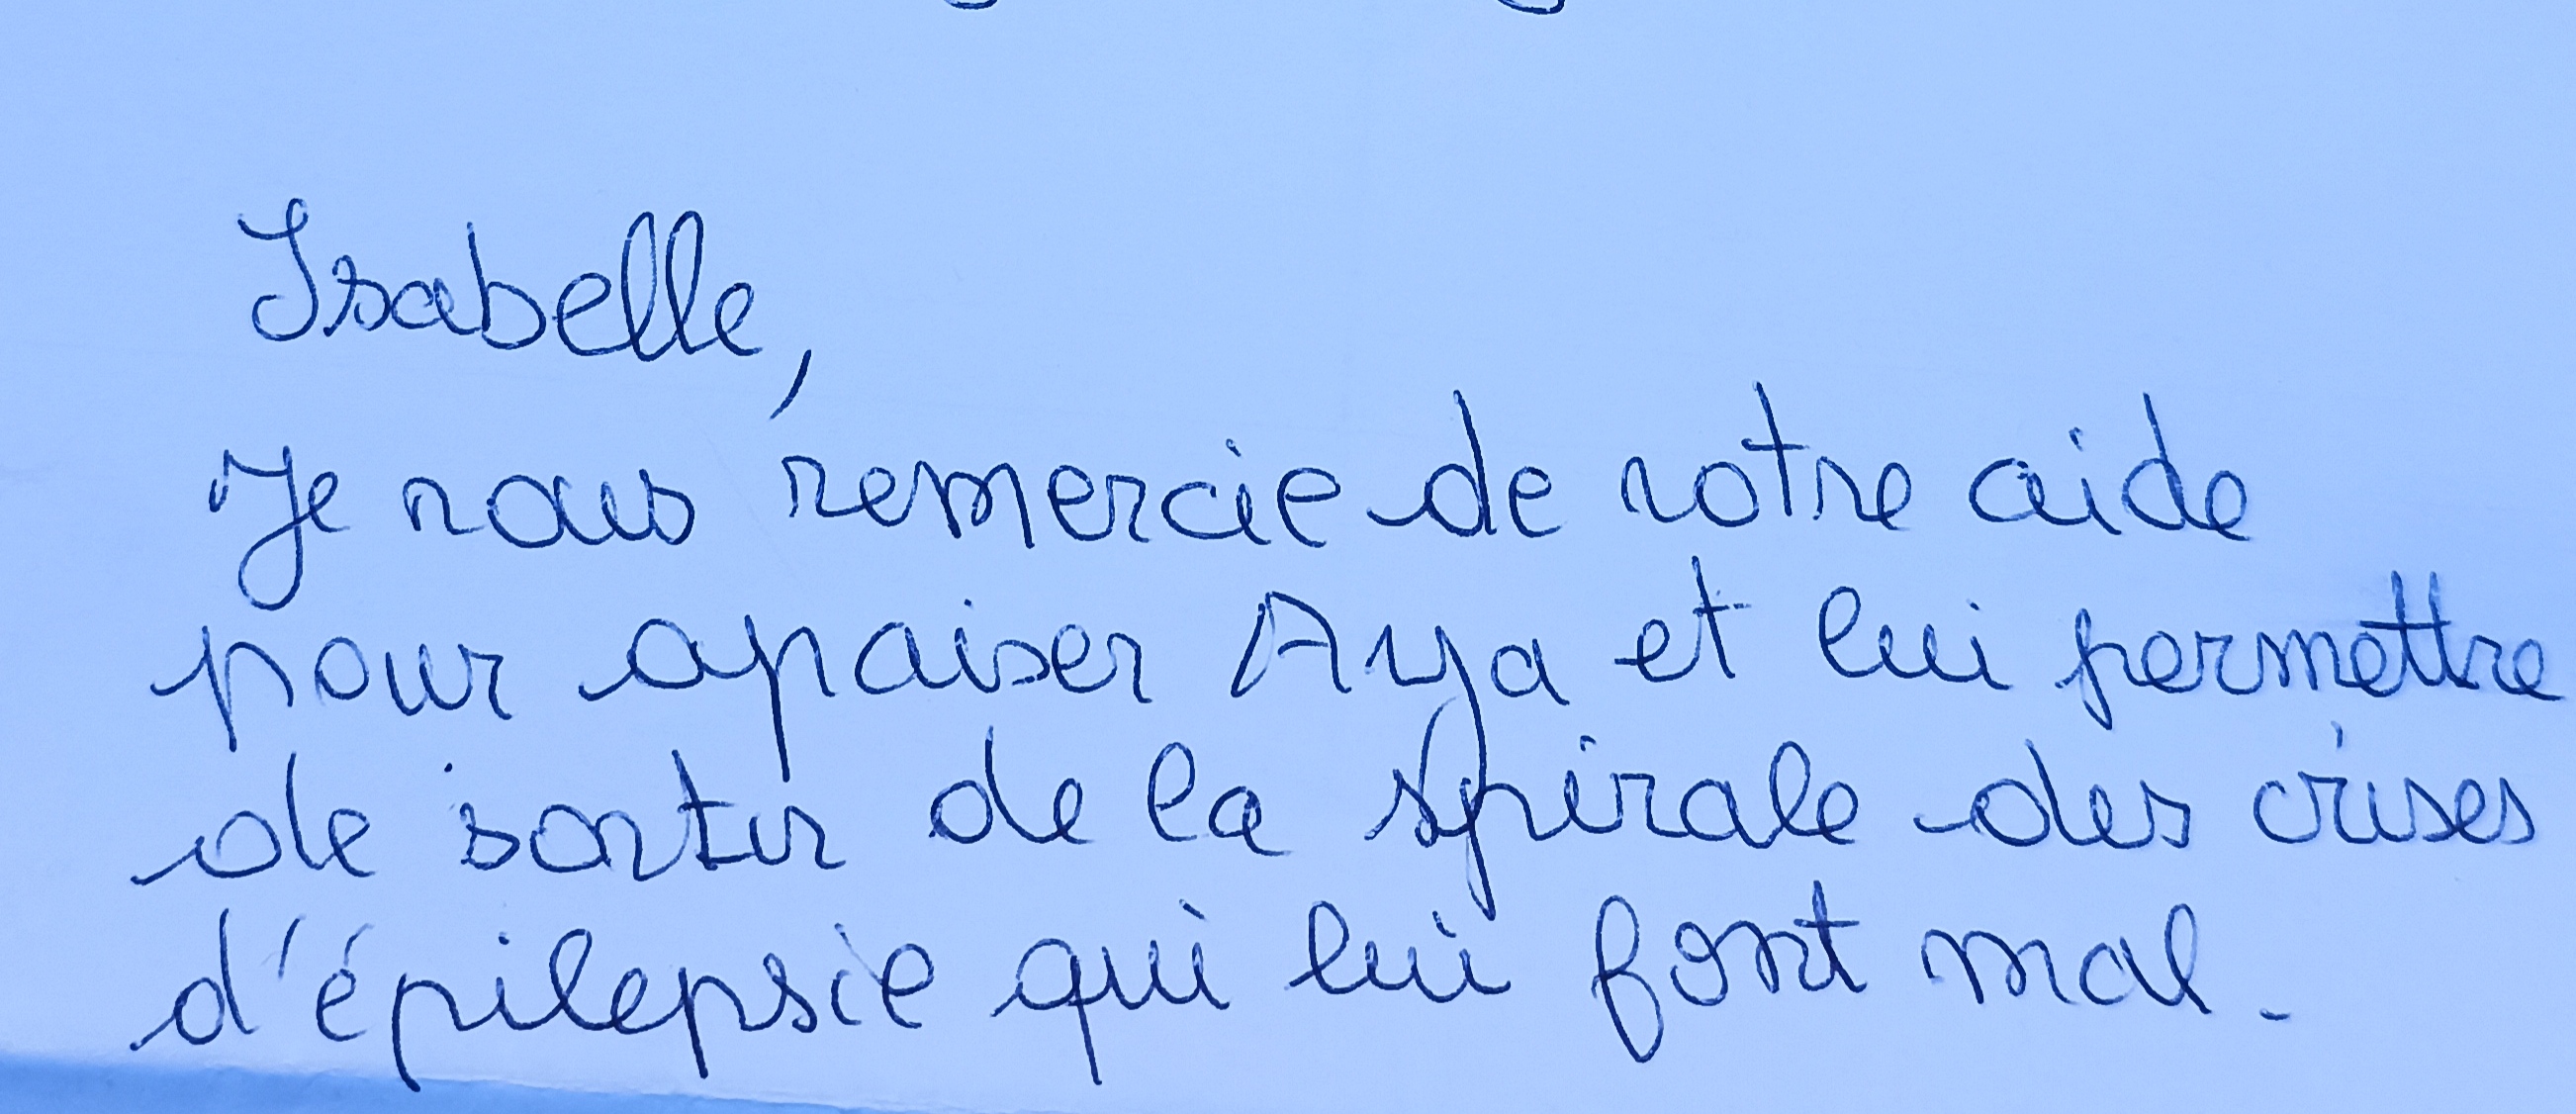 Isabelle,
Je vous remercie de votre aide
pour apaiser Aya et lui permettre
de sortir de la spirale des crises
d'épilepsie qui lui font mal.